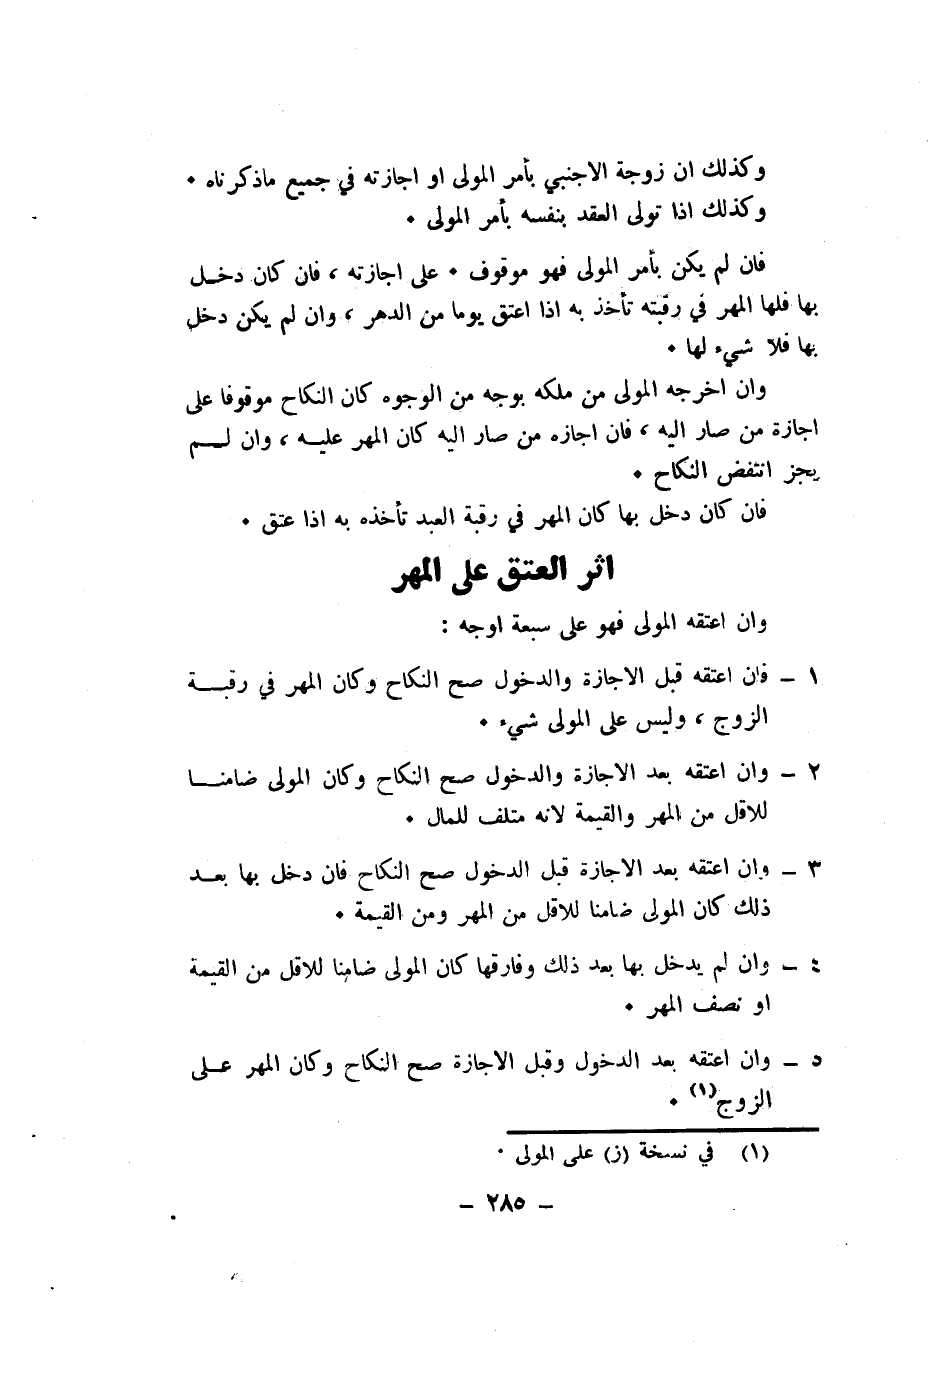 وكذلك ان زوجة الاجنبي بأمر المولى او اجازته في جميع ماذكرناه .
وكذلك اذا تولى العقد بنفسه بأمر المولى .
فان لم يكن بأمر المولى فهو موقوف . على اجازته ، فان كان دخـل
بها فلها المهر في رقبته تأخذ به اذا اعتق يوما من الدهر ، وان لم يكن دخل
بها فلا شيء لها .
وان اخرجه المولى من ملكه بوجه من الوجوه كان النكاح موقوفا على
اجازة من صار اليه ، فان اجازه من صار اليه كان المهر عليـه ، وان لـم
يجز انتفض النكاح .
فان كان دخل بها كان المهر في رقبة العبد تأخذه به اذا عتق .
اثر العتق على المهر
وان اعتقه المولى فهو على سبعة اوجه :
١ – فان اعتقه قبل الاجازة والدخول صح النكاح وكان المهر في رقبـة
الزوج ، وليس على المولى شيء .
٢ – وان اعتقه بعد الاجازة والدخول صح النكاح وكان المولى ضامنـا
للاقل من المهر والقيمة لانه متلف للمال .
٣ – وان اعتقه بعد الاجازة قبل الدخول صح النكاح فان دخل بها بعـد
ذلك كان المولى ضامنا للاقل من المهر ومن القيمة .
٤ – وان لم يدخل بها بعد ذلك وفارقها كان المولى ضامنا للاقل من القيمة
او نصف المهر .
٥ – وان اعتقه بعد الدخول وقبل الاجازة صح النكاح وكان المهر علـى
الزوج(١) .
(١) في نسخة (ز) على المولى .
– ٢٨٥ –